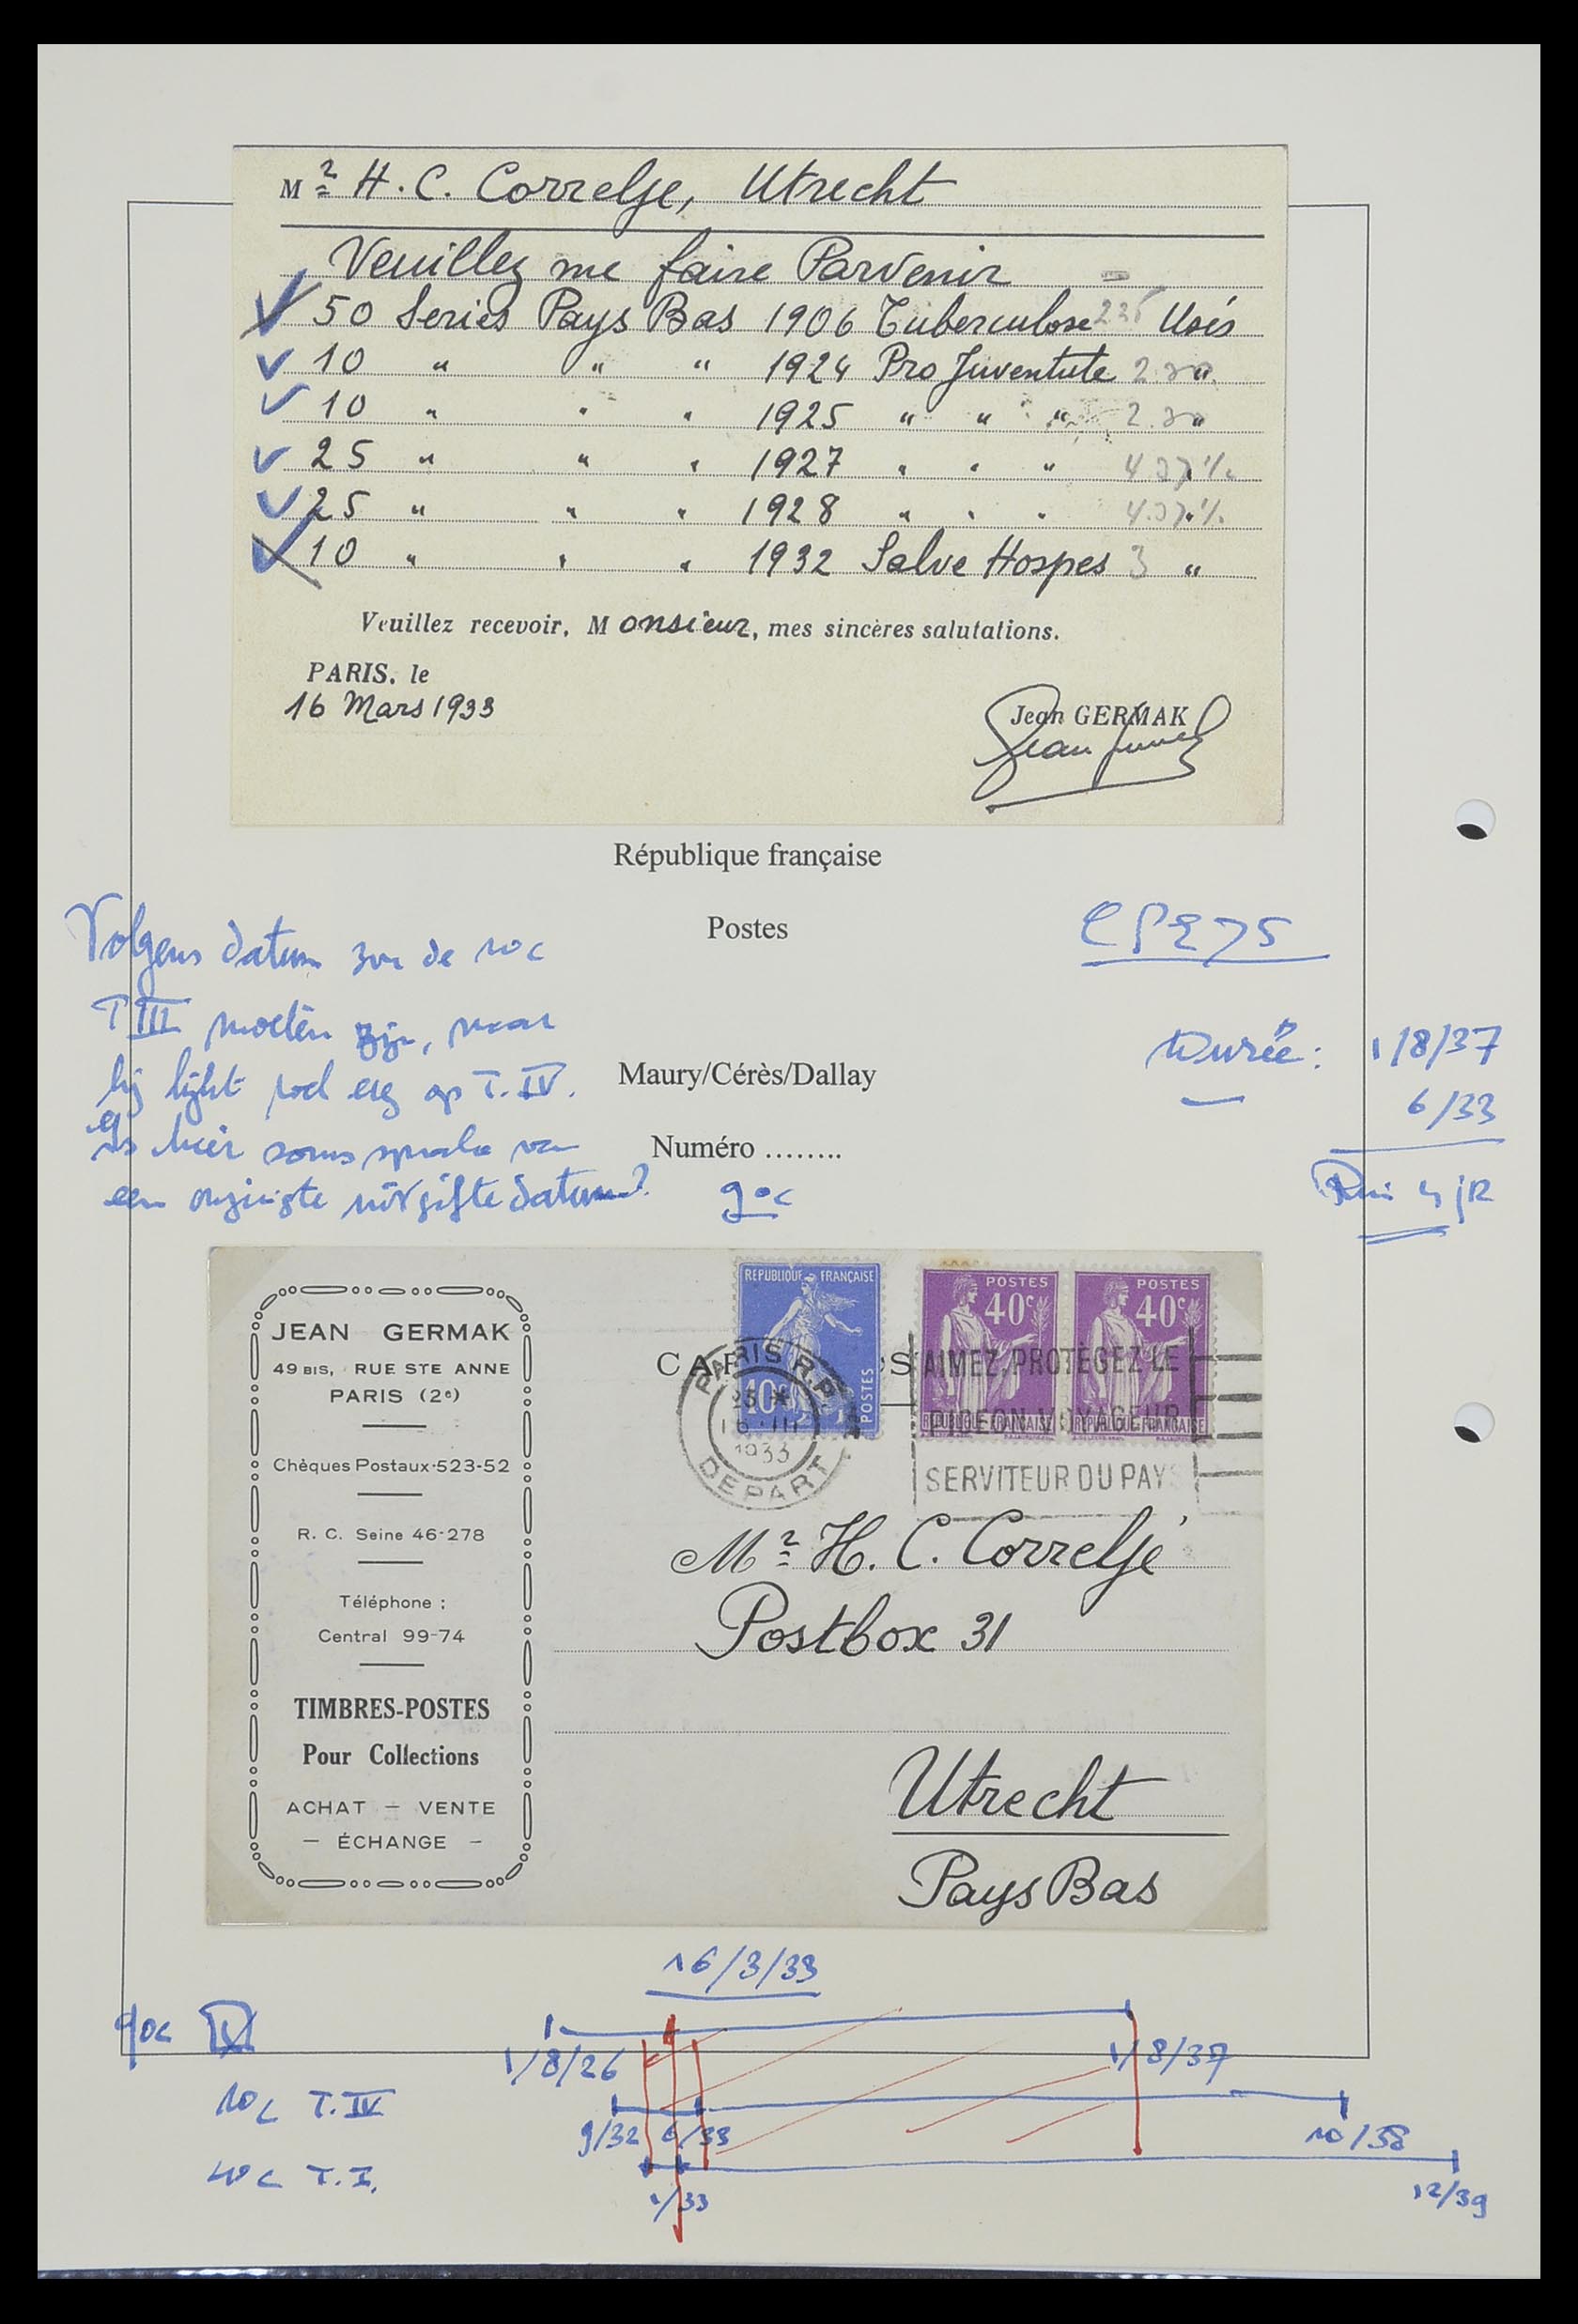 Mr H. C. Correlje, Utrecht
Veuillez me faire Parvenir
50 Series Pays Bas 1906 Tuberculose Usés
10 " " " 1924 Pro Juventute "
10 " " " 1925 " " " "
25 " " " 1927 " " "
25 " " " 1928 " " "
10 " " " 1932 Salve Hospes 3 "
Veuillez recevoir, Monsieur, mes sincères salutations.
PARIS, le
16 Mars 1933
Jean GERMAK
République française
Postes
Maury/Cérès/Dallay
Numéro ........
90c
Volgens datum zou de 10c
T III moeten zijn, maar
hij lijkt wel erg op T. IV.
Is hier soms sprake van
een onjuiste uitgifte datum?
Durée: 1/8/37
6/33
4 jr
JEAN GERMAK
49 BIS, RUE STE ANNE
PARIS (2e)
Chèques Postaux 523-52
R. C. Seine 46-278
Téléphone :
Central 99-74
TIMBRES-POSTES
Pour Collections
ACHAT - VENTE
- ÉCHANGE -
REPUBLIQUE FRANÇAISE
10c
POSTES
POSTES
40c
REPUBLIQUE FRANÇAISE
POSTES
40c
REPUBLIQUE FRANÇAISE
PARIS R.P.
16 III
1933
DEPART
AIMEZ, PROTÉGEZ LE
PIGEON VOYAGEUR
SERVITEUR DU PAYS
Mr H. C. Correljé
Postbox 31
Utrecht
Pays Bas
16/3/33
90c
1/8/26 1/8/37
10c T. IV
9/32 6/33 10/38
40c T. I.
1/33 12/39